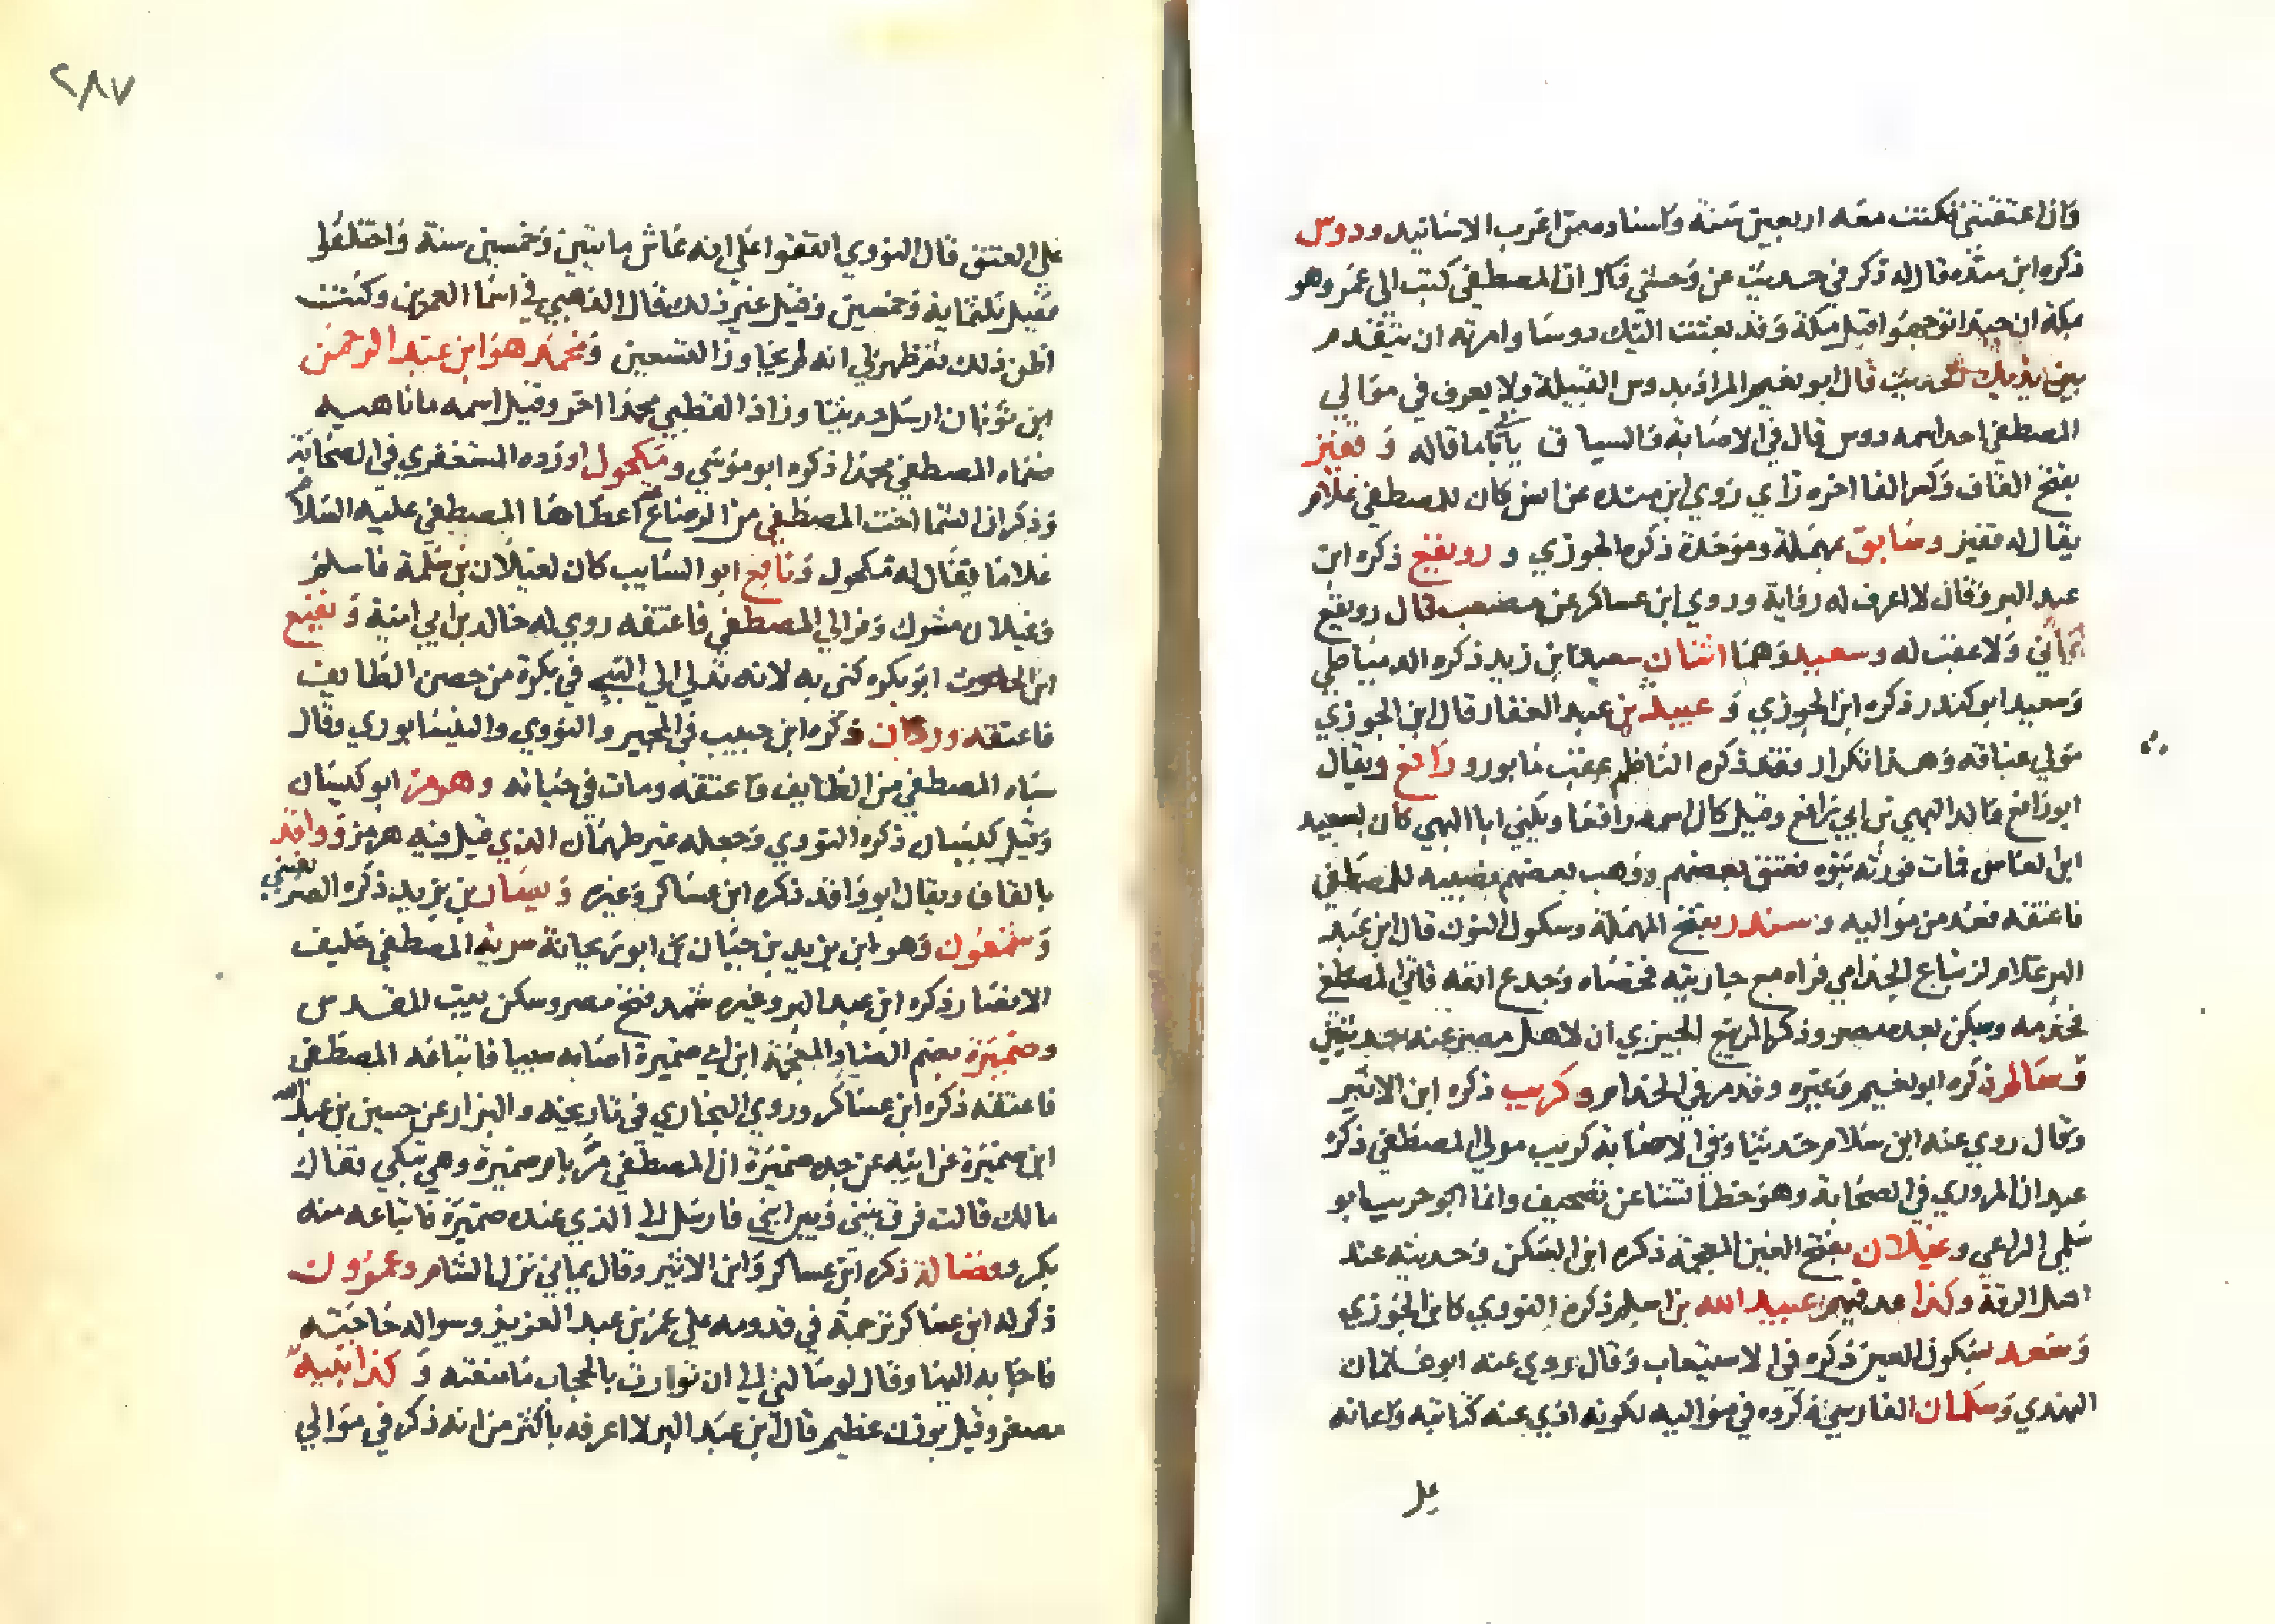 وان اعتقتني فكنت معه اربعين سنة واسناده من اغرب الاسانيد ودوس
ذكره ابن منده قال له ذكر في حديث عن وحشي قال ان المصطفى كتب الى عمر وهو
بمكة ان جيدا توجهوا قبل مكة وقد بعثت اليك دوسا وامرته ان يتقدم
بين يديك الحديث قال ابو نعيم المراد بدوس القبيلة ولا يعرف في موالي
المصطفى احد اسمه دوس قال في الاصابة فالسياق يأبى ما قاله و قفيز
بفتح القاف وكسر الفا اخره زاي روى ابن منده عن انس كان للمصطفى غلام
يقال له قفيز وسابق بمهملة وموحدة ذكره الجوزي و رويفع ذكره ابن
عبد البر وقال لا اعرف له رواية وروى ابن عساكر عن مصعب قال رويفع
ولا عقب له وسعيد وهما اثنان سعيد ابن زيد ذكره الدمياطي
وسعيد ابو كندر ذكره ابن الجوزي و عبيد بن عبد الغفار قال ابن الجوزي
مولى عتاقه وهذا تكرار فقد ذكره الناظم عقب مابور و رافع ويقال
ابو رافع والد البهي بن ابي رافع وقيل كان اسمه رافعا ويكنى ابا البهي كان لسعيد
ابن العاص فمات فورثه بنوه فعتق بعضهم ووهب بعضهم نصيبه للمصطفى
فاعتقه فعد من مواليه و سندر بفتح المهملة وسكون النون قال ابن عبد
البر غلام لزنباع الجذامي فراه مع جاريته فخصاه وجدع انفه فاتى المصطفى
فخدمه وسكن بعده مصر وذكر الربيع الجيزي ان لاهل مصر عنه حديثين
وسالم ذكره ابو نعيم وغيره وقد مر في الخدام وكريب ذكره ابن الاثير
وقال روى عنه ابن سلام حديثا وفي الاصابة كريب مولى المصطفى ذكره
عبدان المروزي في الصحابة وهو خطا نشا عن تصحيف وانما هو حريب ابو
سلمى الراعي و غيلان بفتح الغين المعجمة ذكره ابن السكن وحديثه عند
اهل الرقة وكذا عد فيهم عبيد الله بن اسلم ذكره النووي كابن الجوزي
وسعد بسكون العين ذكره في الاستيعاب وقال روى عنه ابو عثمان
النهدي وسلمان الفارسي ذكروه في مواليه لكونه ادى عنه كتابته واعانه
على
٢٨٧
على العتق قال النووي اتفقوا على انه عاش مايتين وخمسين سنة واختلفوا
فقيل ثلثماية وخمسين وقيل غير ذلك قال الذهبي في اسما وكنت
اظن ذلك ثم ظهر لي انه لم يجاوز التسعين ومحمد هو ابن عبد الرحمن
ابن ثوبان ارسل حديثا وزاد القطبي محمدا اخر وقيل اسمه ماناهيه
فسماه المصطفى محمدا ذكره ابو موسى ومكحول اورده المستغفري في الصحابة
وذكر ان الشما اخت المصطفى من الرضاع اعطاها المصطفى عليه السلام
غلاما يقال له مكحول ونافع ابو السايب كان لغيلان بن سلمة فاسلم
وغيلان مشرك وفر الى المصطفى فاعتقه روى له خالد بن ابي امية و نفيع
ابن الحارث ابو بكره كني به لانه تدلى الى النبي في بكرة من حصن الطايف
فاعتقه ووردان ذكره ابن حبيب في المحبر والنووي والنيسابوري وقال
سباه المصطفى من الطايف فاعتقه ومات في حياته وهرمز ابو كيسان
وقيل كيسان ذكره النووي وجعله غير طهمان الذي قيل فيه هرمز وواقد
بالقاف ويقال ابو واقد ذكره ابن عساكر وغيره ويسار بن يزيد ذكره
وشمعون وهو ابن يزيد بن ابو ريحانة سرية المصطفى حليف
الانصار ذكره ابن عبد البر وغيره شهد فتح مصر وسكن بيت المقدس
وضميرة بضم الضاد المعجمة ابن ابي ضميرة اصابه سبيا فابتاعه المصطفى
فاعتقه ذكره ابن عساكر وروى البخاري في تاريخه والبزار عن حسين بن عبد الله
ابن ضميرة عن ابيه عن جده ضميرة ان المصطفى مر بام ضميرة وهي تبكي فقال
مالك قالت فرق بيني وبين ابني فارسل الى الذي عنده ضميرة فابتاعه منه
بكر وفضالة ذكره ابن عساكر وابن الاثير وقال يماني نزل الشام و
ذكر له ابن عساكر ترجمة في قدومه على عمر بن عبد العزيز وسواله حاجته
فاجابه اليها وقال لو سالني الى ان توارت بالحجاب ما منعته و كذا نبيه
مصغر وقيل بوزن عظيم قال ابن عبد البر لا اعرفه باكثر من انه ذكر في موالي